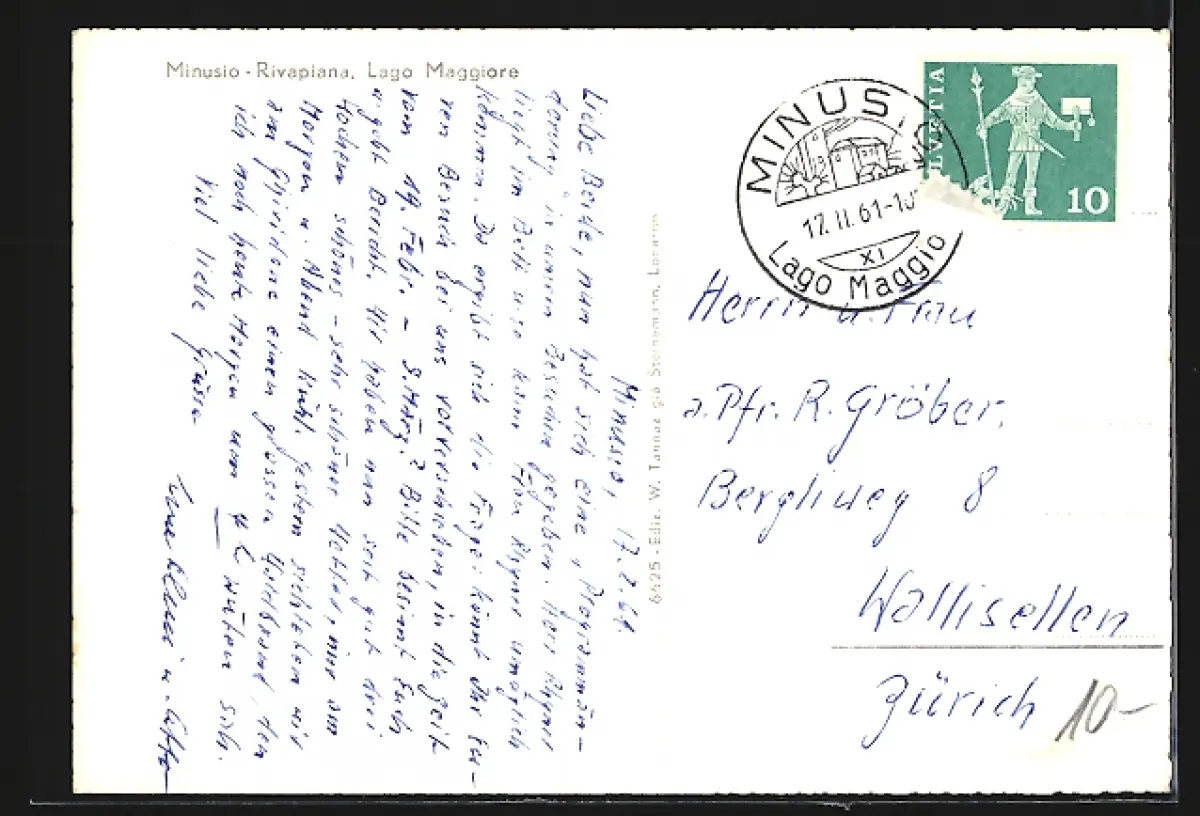 Minusio - Rivapiana, Lago Maggiore
Minusio, 17.2.61.
Liebe Beide, nun hat sich eine "Programmän-
derung" in unsern Besuchen gegeben. Herr Rhyner
liegt im Bett u. so kann Frau Rhyner unmöglich
kommen. Da ergibt sich die Frage: könnt Ihr Eu-
ren Besuch bei uns vorverschieben, in die Zeit
vom 19. Febr. - 5. März? Bitte besinnt Euch
u. gebt Bericht. Wir haben nun seit gut drei
Wochen schönes - sehr schönes Wetter, nur am
Morgen u. Abend kühl. Gestern sichteten wir
am Ghiridone einen grossen Waldbrand, den
ich noch heute Morgen um 4 h wüten sah.
Viel liebe Grüsse
6625 - Ediz. W. Tannaz già Steinemann, Locarno
MINUSIO
17.II.61-1
XI
Lago Maggio
HELVETIA
10
Herrn u. Frau
a. Pfr. R. Gröber.
Bergliweg 8
Wallisellen
Zürich
10-